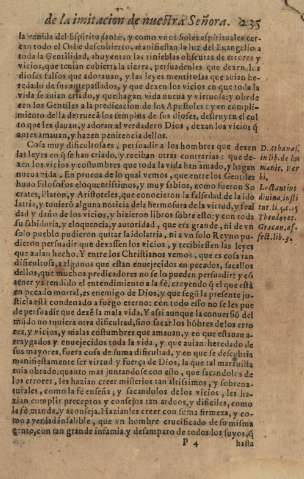 de la imitacion de nuestra Señora. 235
la venida del Espiritu santo, y como vnos Soles espirituales cer-
can todo el Orbe descubierto, manifiestan la luz del Euangelio a
toda la Gentilidad, ahuyentan las tinieblas obscuras de errores y
vicios, que tenian cubierta la tierra, persuadenles que dexen los
dioses falsos que adorauan, y las leyes mentirosas que auian he-
redado de sus antepassados, y que dexen los vicios en que toda la
vida se auian criado, y que hagan vida nueua y virtuosa: y obede-
cen los Gentiles a la predicacion de los Apostoles: y en cumpli-
miento della derruecan los templos de sus dioses, destruyen el cul
to que les dauan, y adoran al verdadero Dios, dexan los vicios q̃
antes amauan, y hazen penitencia dellos.
Cosa muy dificultosa es, persuadir a los hombres que dexen
las leyes en q̃ se han criado, y reciban otras contrarias: que de-
xen los vicios y costumbres que toda la vida han amado, y hagan
nueua vida. En prueua de lo qual vemos, que entre los Gentiles
huuo Filosofos eloquentissimos, y muy sabios, como fueron So
crates, Platon, y Aristoteles, que conocieron la falsedad de la ido
latria, y tuuieron alguna noticia de la hermosura de la virtud, y feal
dad y daño de los vicios, y hizieron libros sobre esto: y con toda
su sabiduria, y eloquencia, y autoridad, que era grande, ni de vn
solo pueblo pudieron quitar la idolatria, ni a vn solo Reyno pu-
dieron persuadir que dexassen los vicios, y recibiessen las leyes
que auian hecho. Y entre los Christianos vemos, que es cosa tan
dificultosa, a algunos que estan enuejecidos en pecados, sacallos
dellos, que muchos predicadores no se lo pueden persuadir: y es
tener ya rendido el entendimiento a la fè, creyendo q̃ el que està
en pecado mortal, es enemigo de Dios, y que segun la presente ju
sticia està condenado a fuego eterno: con todo esso no se les pue
de persuadir que dexẽ la mala vida. Y assi aunque la conuersion del
mũdo no tuuiera otra dificultad, sino sacar los hõbres de los erro
res, y vicios, y malas costumbres que amauan, y en que estauan a-
rraygados y enuejecidos toda la vida, y que auian heredado de
sus mayores, fuera cosa de suma dificultad, y en que se descubria
manifiestamente la virtud y fuerça de Dios, la que tal marauilla
auia obrado: quanto mas juntandose con esto, que sacandolos de
los errores, les hazian creer misterios tan altissimos, y sobrena-
turales, como la fè enseña, y sacandolos de los vicios, les ha-
zian cumplir preceptos y consejos tan arduos, y dificiles, como
la fè manda, y aconseja. Hazianles creer con suma firmeza, y co-
mo a verdad infalible, que vn hombre crucificado de su misma
gente, con tan grande infamia, y desamparo de todos los suyos, q̃
P 4 hasta
D. Athanas.
in lib. de hu
manit. Ver
bi.
Lactantius
diuina. insti
tut. li. 4. c. 3
Theodoret.
Græcan. af-
fect. lib. 9.